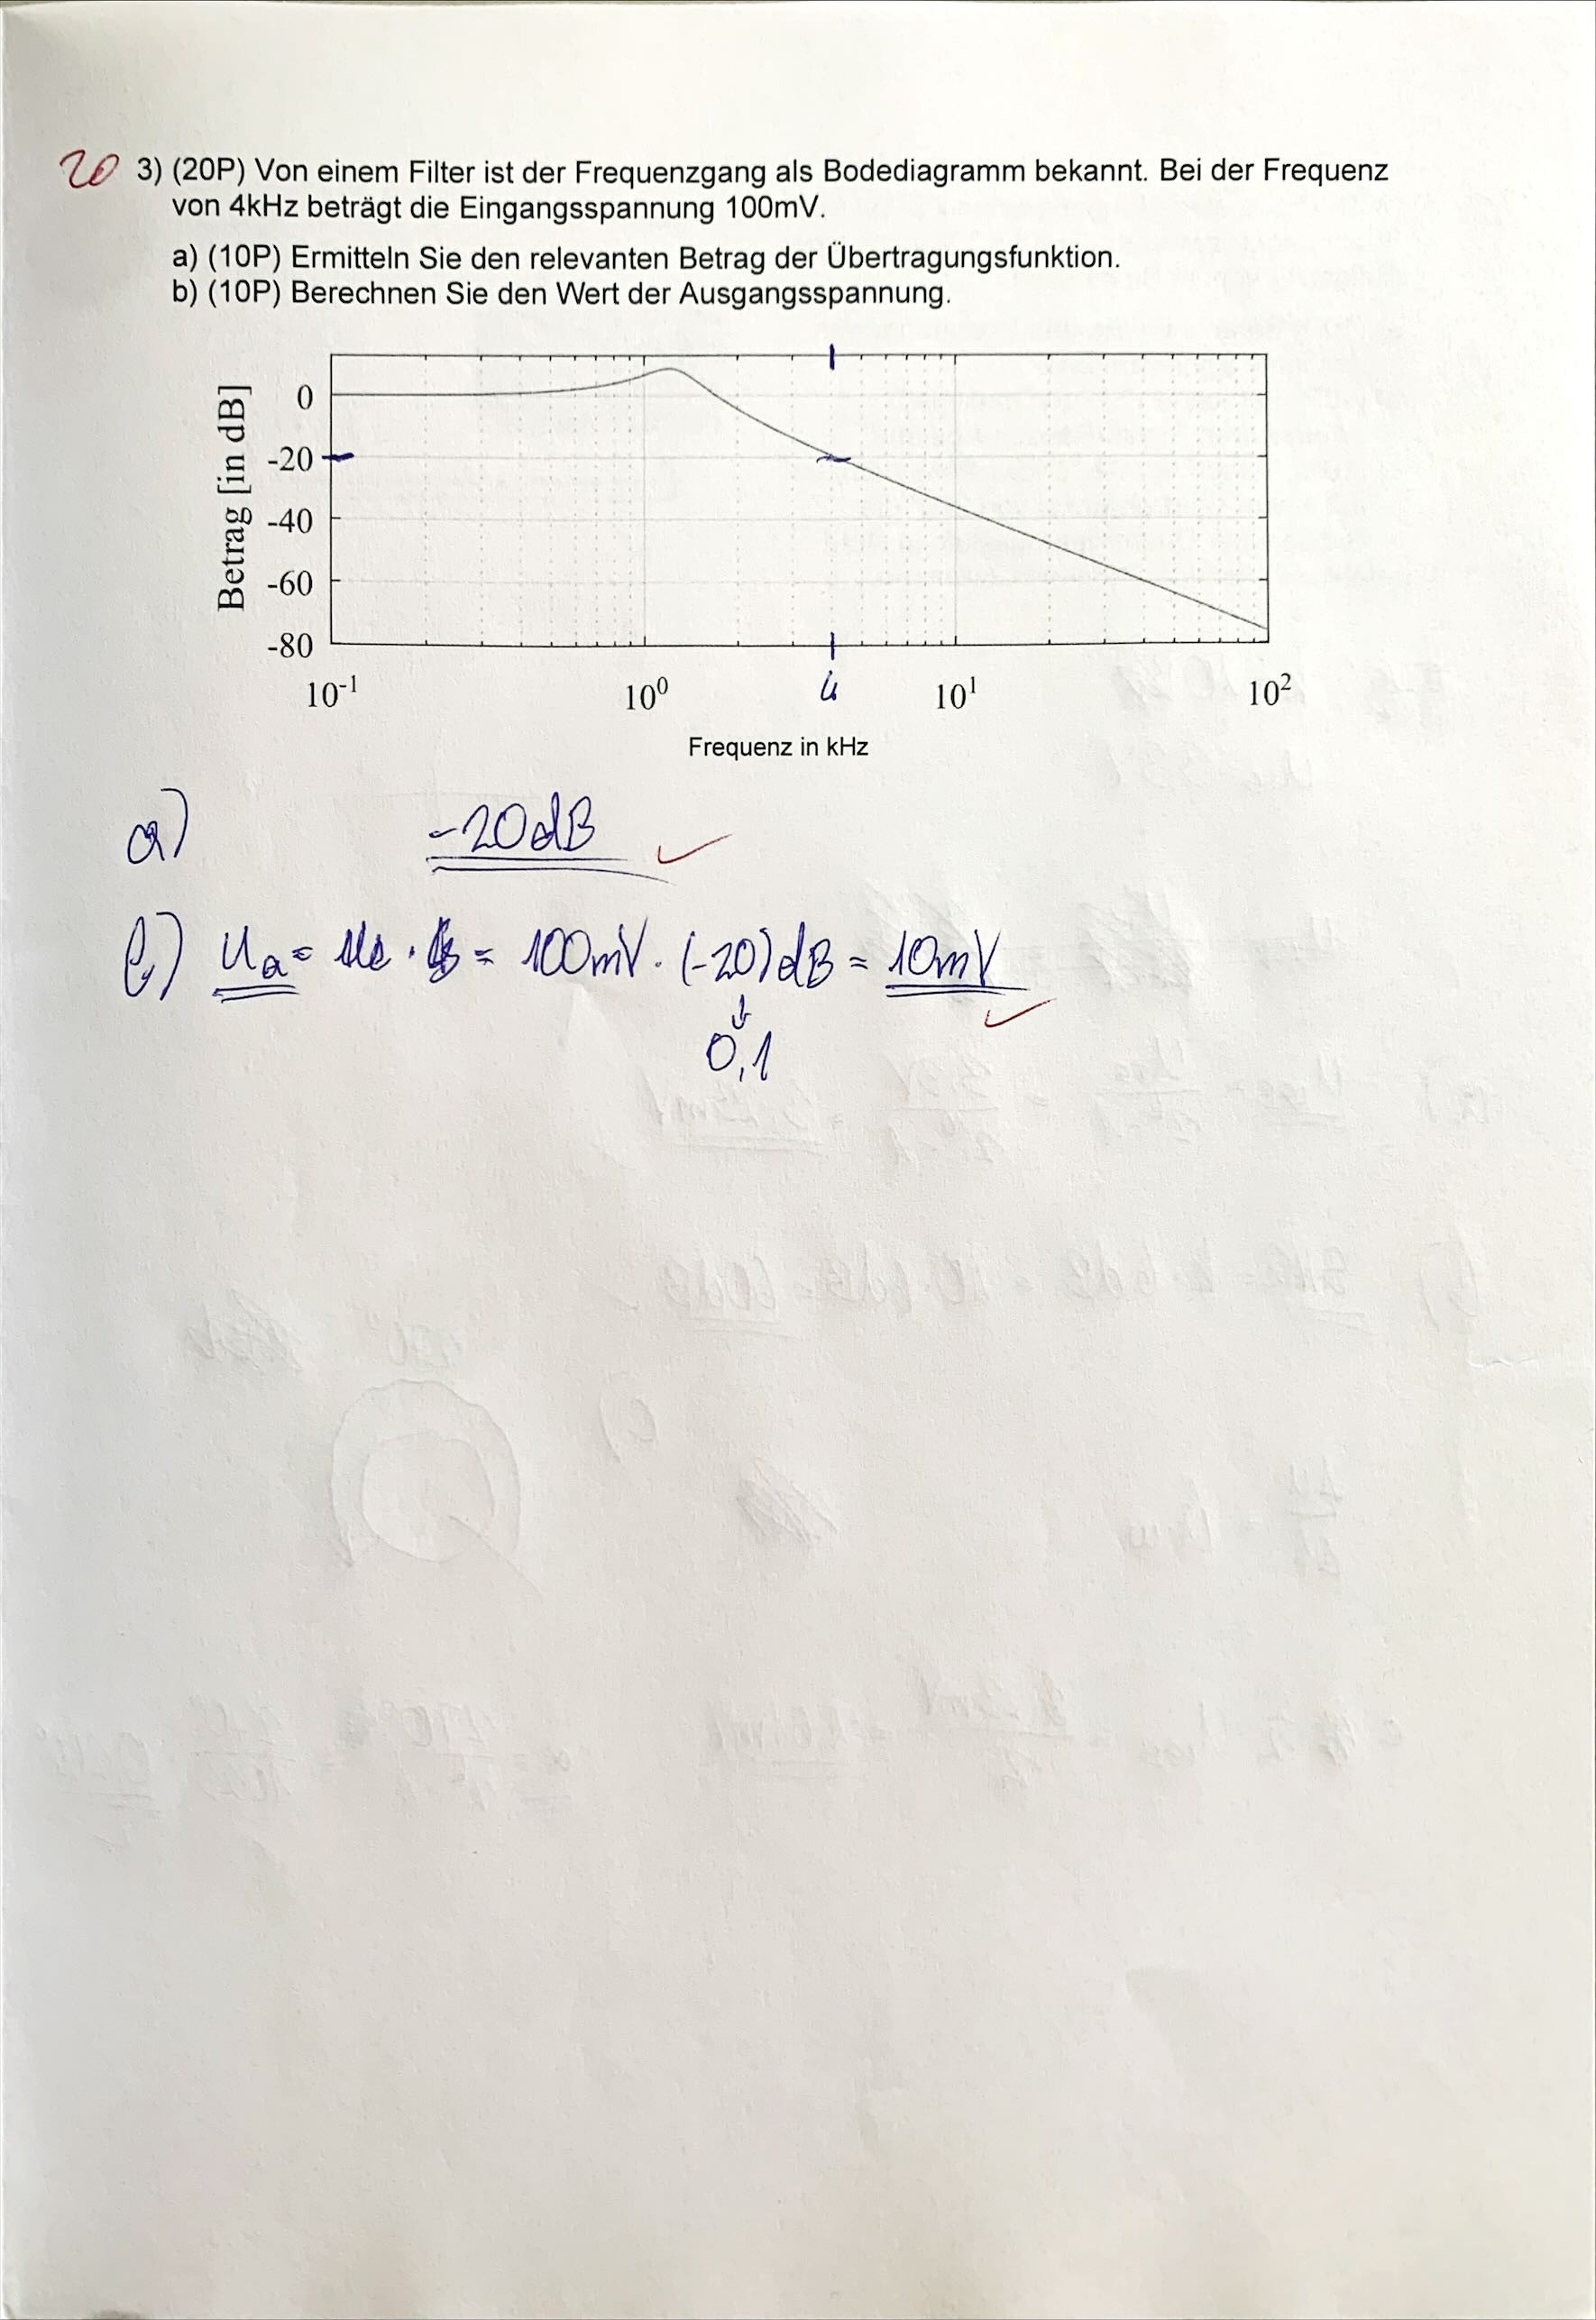 20 3) (20P) Von einem Filter ist der Frequenzgang als Bodediagramm bekannt. Bei der Frequenz
von 4kHz beträgt die Eingangsspannung 100mV.
a) (10P) Ermitteln Sie den relevanten Betrag der Übertragungsfunktion.
b) (10P) Berechnen Sie den Wert der Ausgangsspannung.
Betrag [in dB]
0
-20
-40
-60
-80
10⁻¹ 10⁰ 4 10¹ 10²
Frequenz in kHz
a) -20dB ✓
b) Ua = Ue · = 100mV · (-20)dB = 10mV ✓
↓
0,1